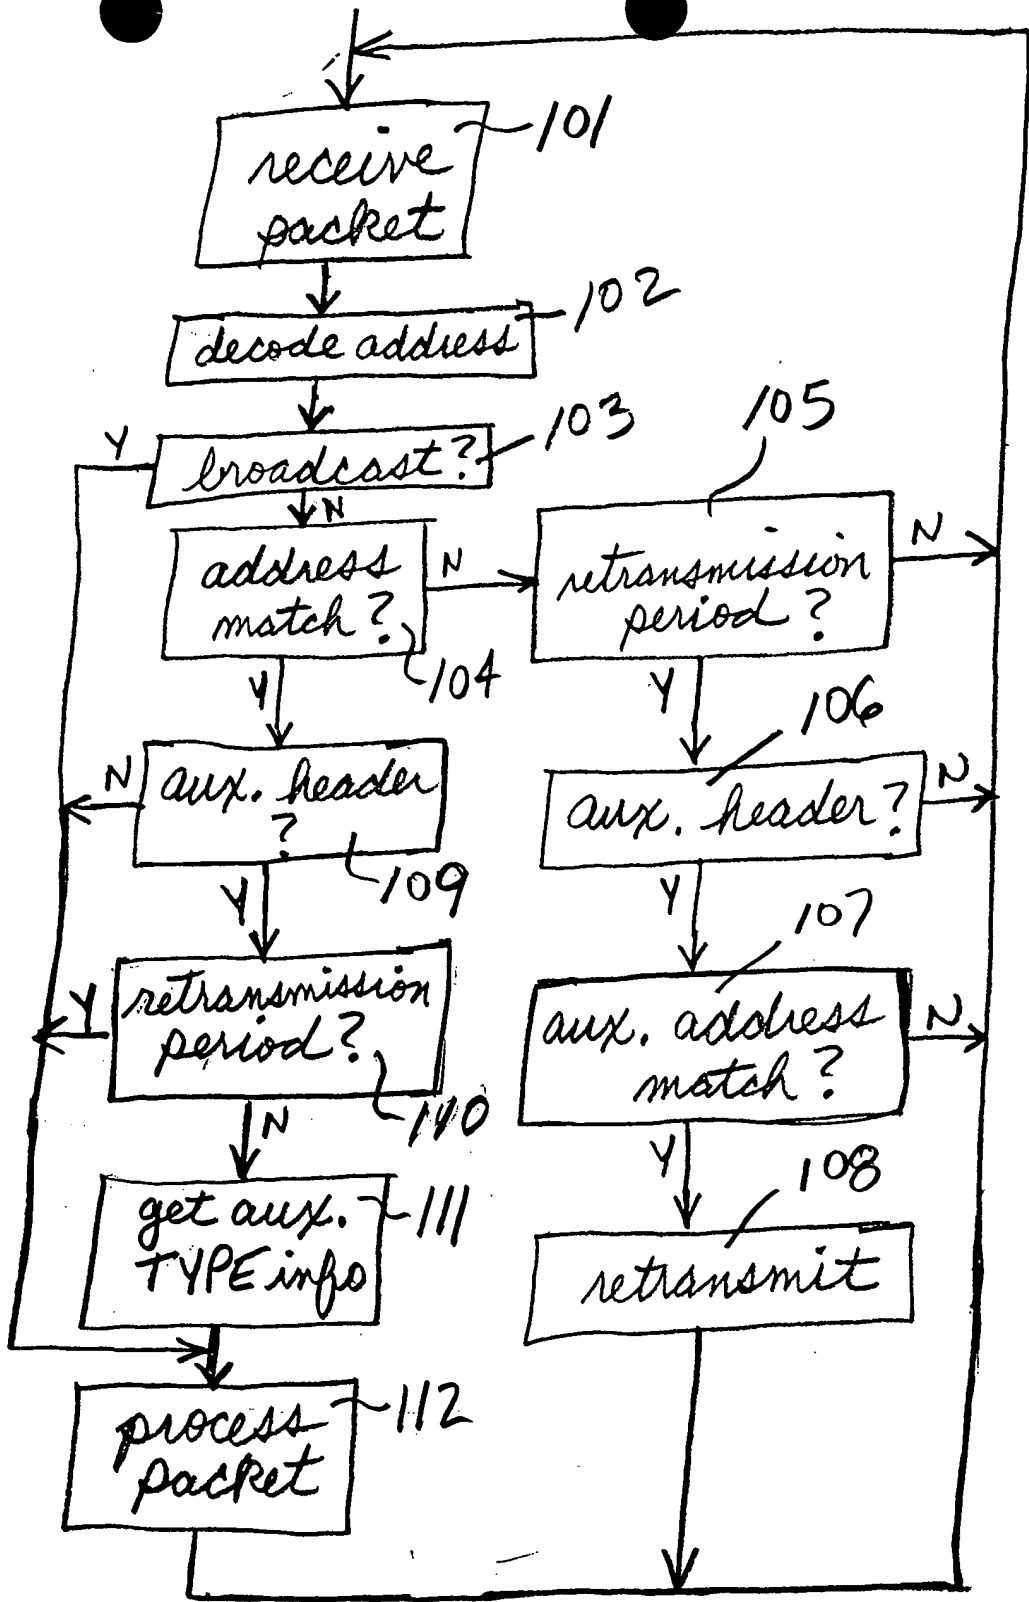 101
receive
packet
102
decode address
103
Y
broadcast?
N
105
address
match?
N
104
retransmission
period?
N
Y
Y
106
N
aux. header
?
109
aux. header?
N
Y
Y
107
Y
retransmission
period?
110
aux. address
match?
N
N
Y
108
get aux.
TYPE info
111
retransmit
112
process
packet